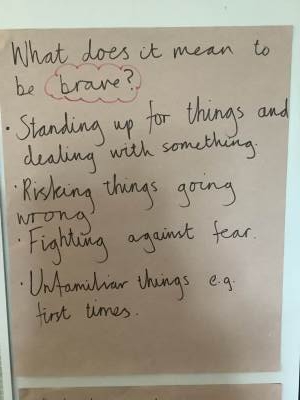 What does it mean to
be brave?
· Standing up for things and
dealing with something.
· Risking things going
wrong
· Fighting against fear.
· Unfamiliar things e.g.
first times.